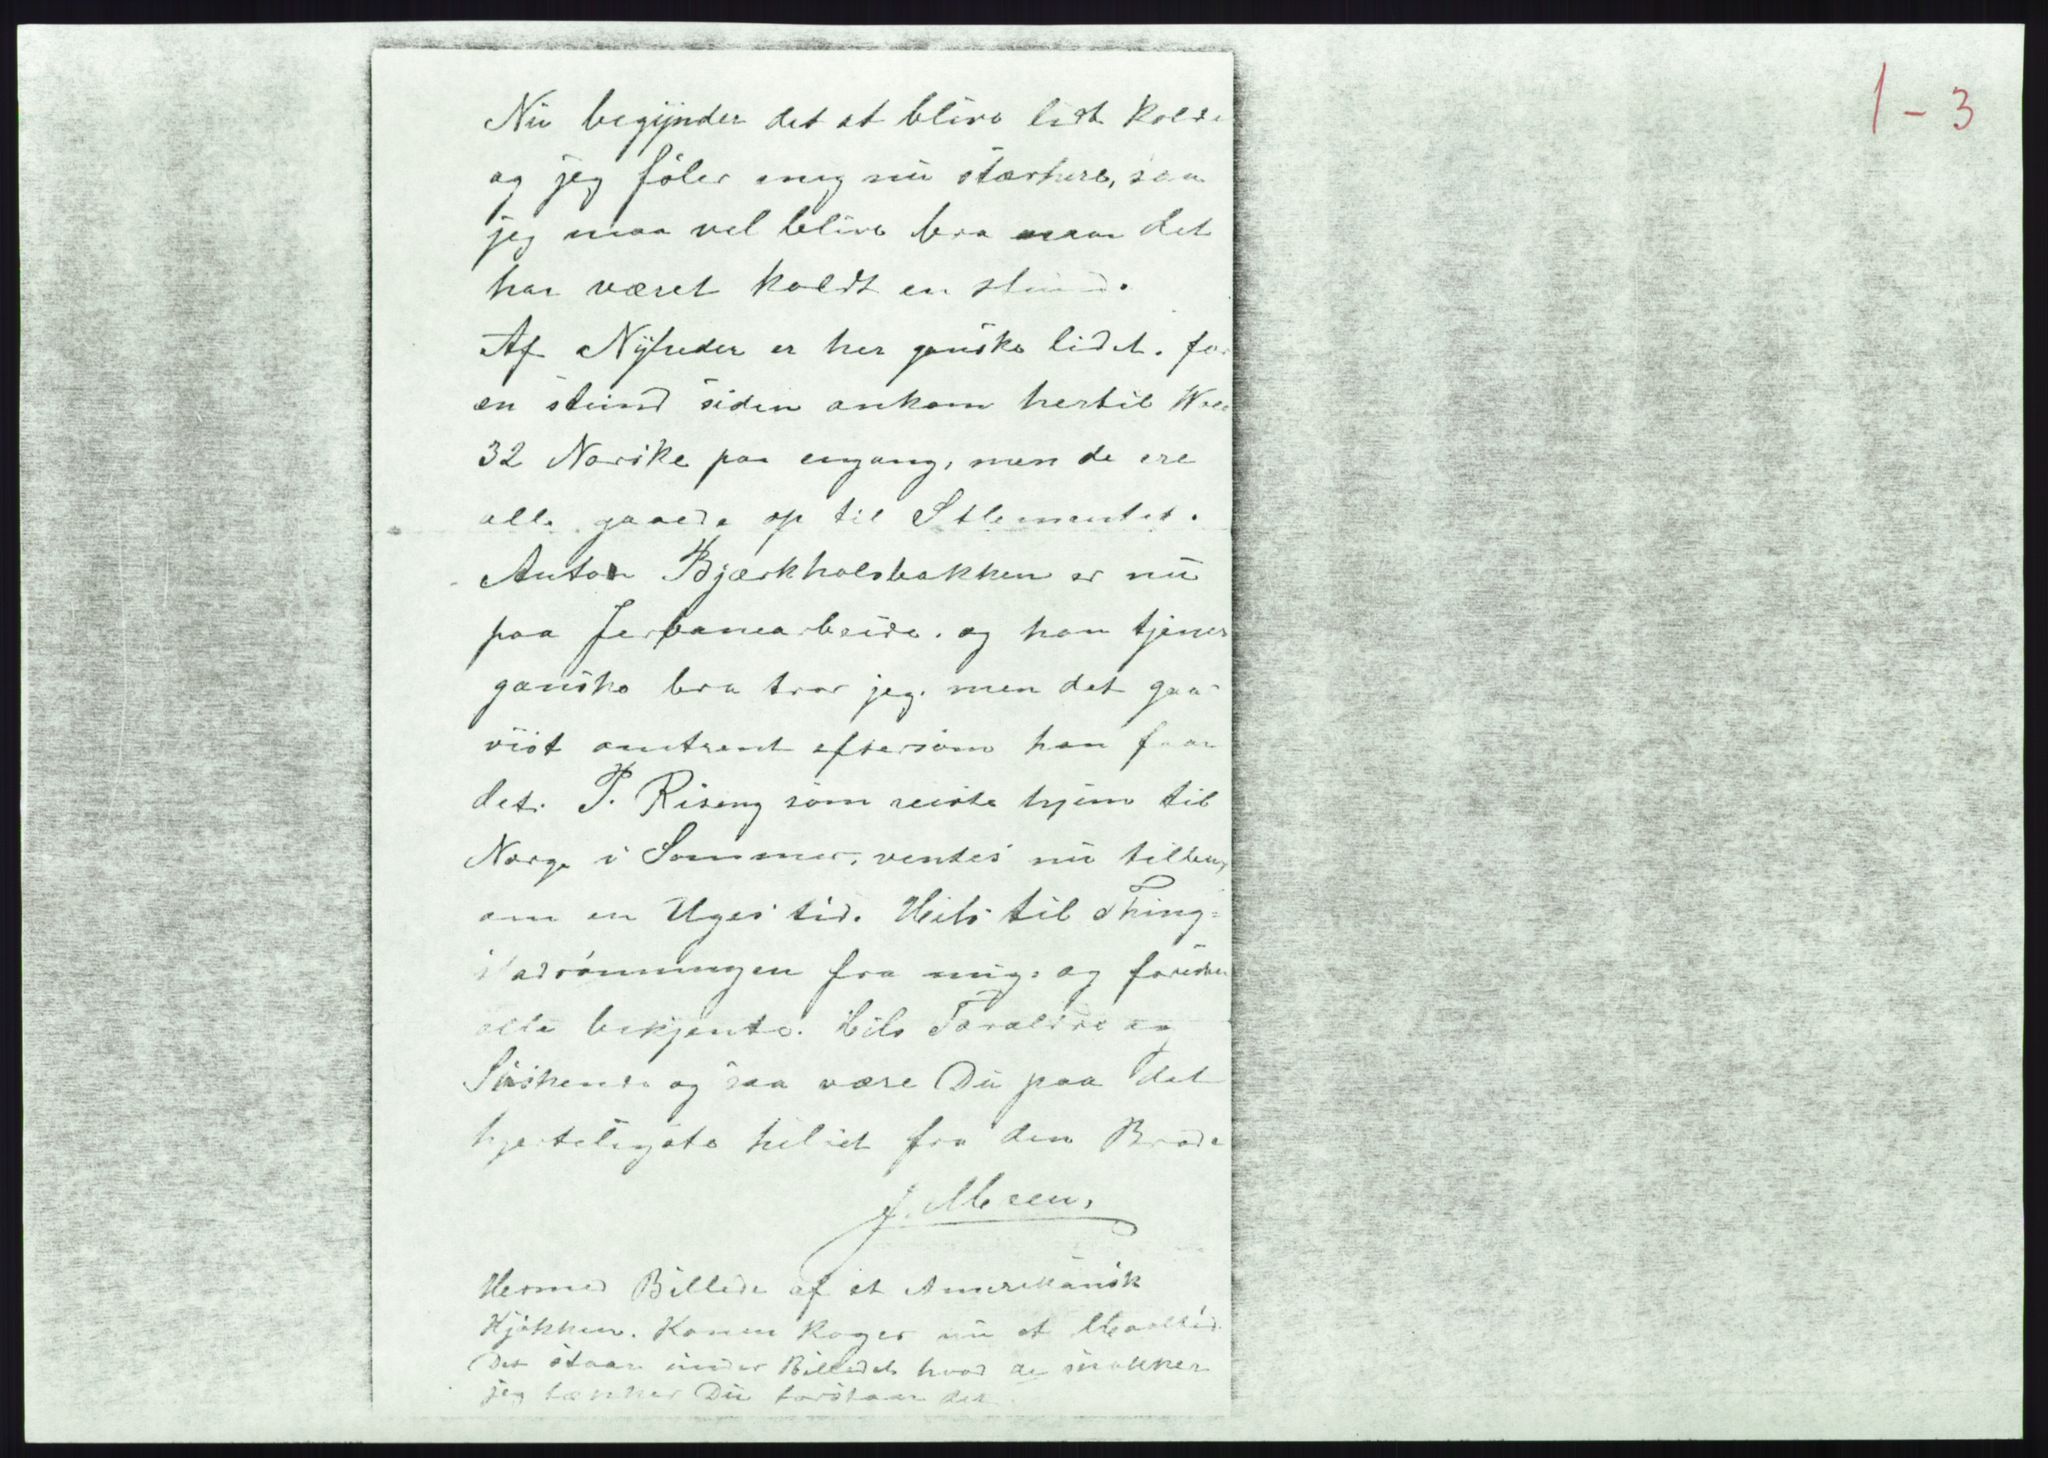 1 - 3
Nu begynder det at blive lidt kold
og jeg føler mig nu stærkere, saa
jeg maa vel blive bra naar det
har været koldt en stund.
Af Nyheder er her ganske lidet. for
en stund siden ankom hertil
32 Norske paa engang, men de ere
alle gaaede op til Setlementet.
Anton Bjærkholsbakken er nu
paa Jerbanearbeide. og han tjener
ganske bra tror jeg. men det gaar
vist omtrent eftersom han faar
det. P. Riseng som reiste hjem til
Norge i Sommer, ventes nu tilbage
om en Uges tid. Hils til Thing=
stadrønningen fra mig. og foresten
alle bekjente. Hils Forældre og
Søskende og saa være Du paa det
hjerteligste hilset fra din Broder
J. Moen.
Hermed Billede af et Amerikansk
Kjøkken. Konen koger nu et Maaltid.
Det staar under Billedet hvad de snakker
jeg tænker Du forstaar det.